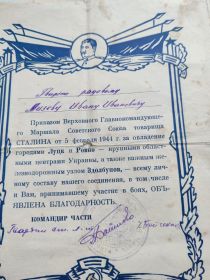 Гвардии рядовому
Ивану Ивановичу
Приказом Верховного Главнокомандующе-
го Маршала Советского Союза товарища
СТАЛИНА от 5 февраля 1944 г. за овладение
городами Луцк и Ровно — крупными област-
ными центрами Украины, а также важным же-
лезнодорожным узлом Здолбунов, — всему лич-
ному составу нашего соединения, в том числе
и Вам, принимавшему участие в боях, ОБЪ-
ЯВЛЕНА БЛАГОДАРНОСТЬ.
КОМАНДИР ЧАСТИ
Гвардии